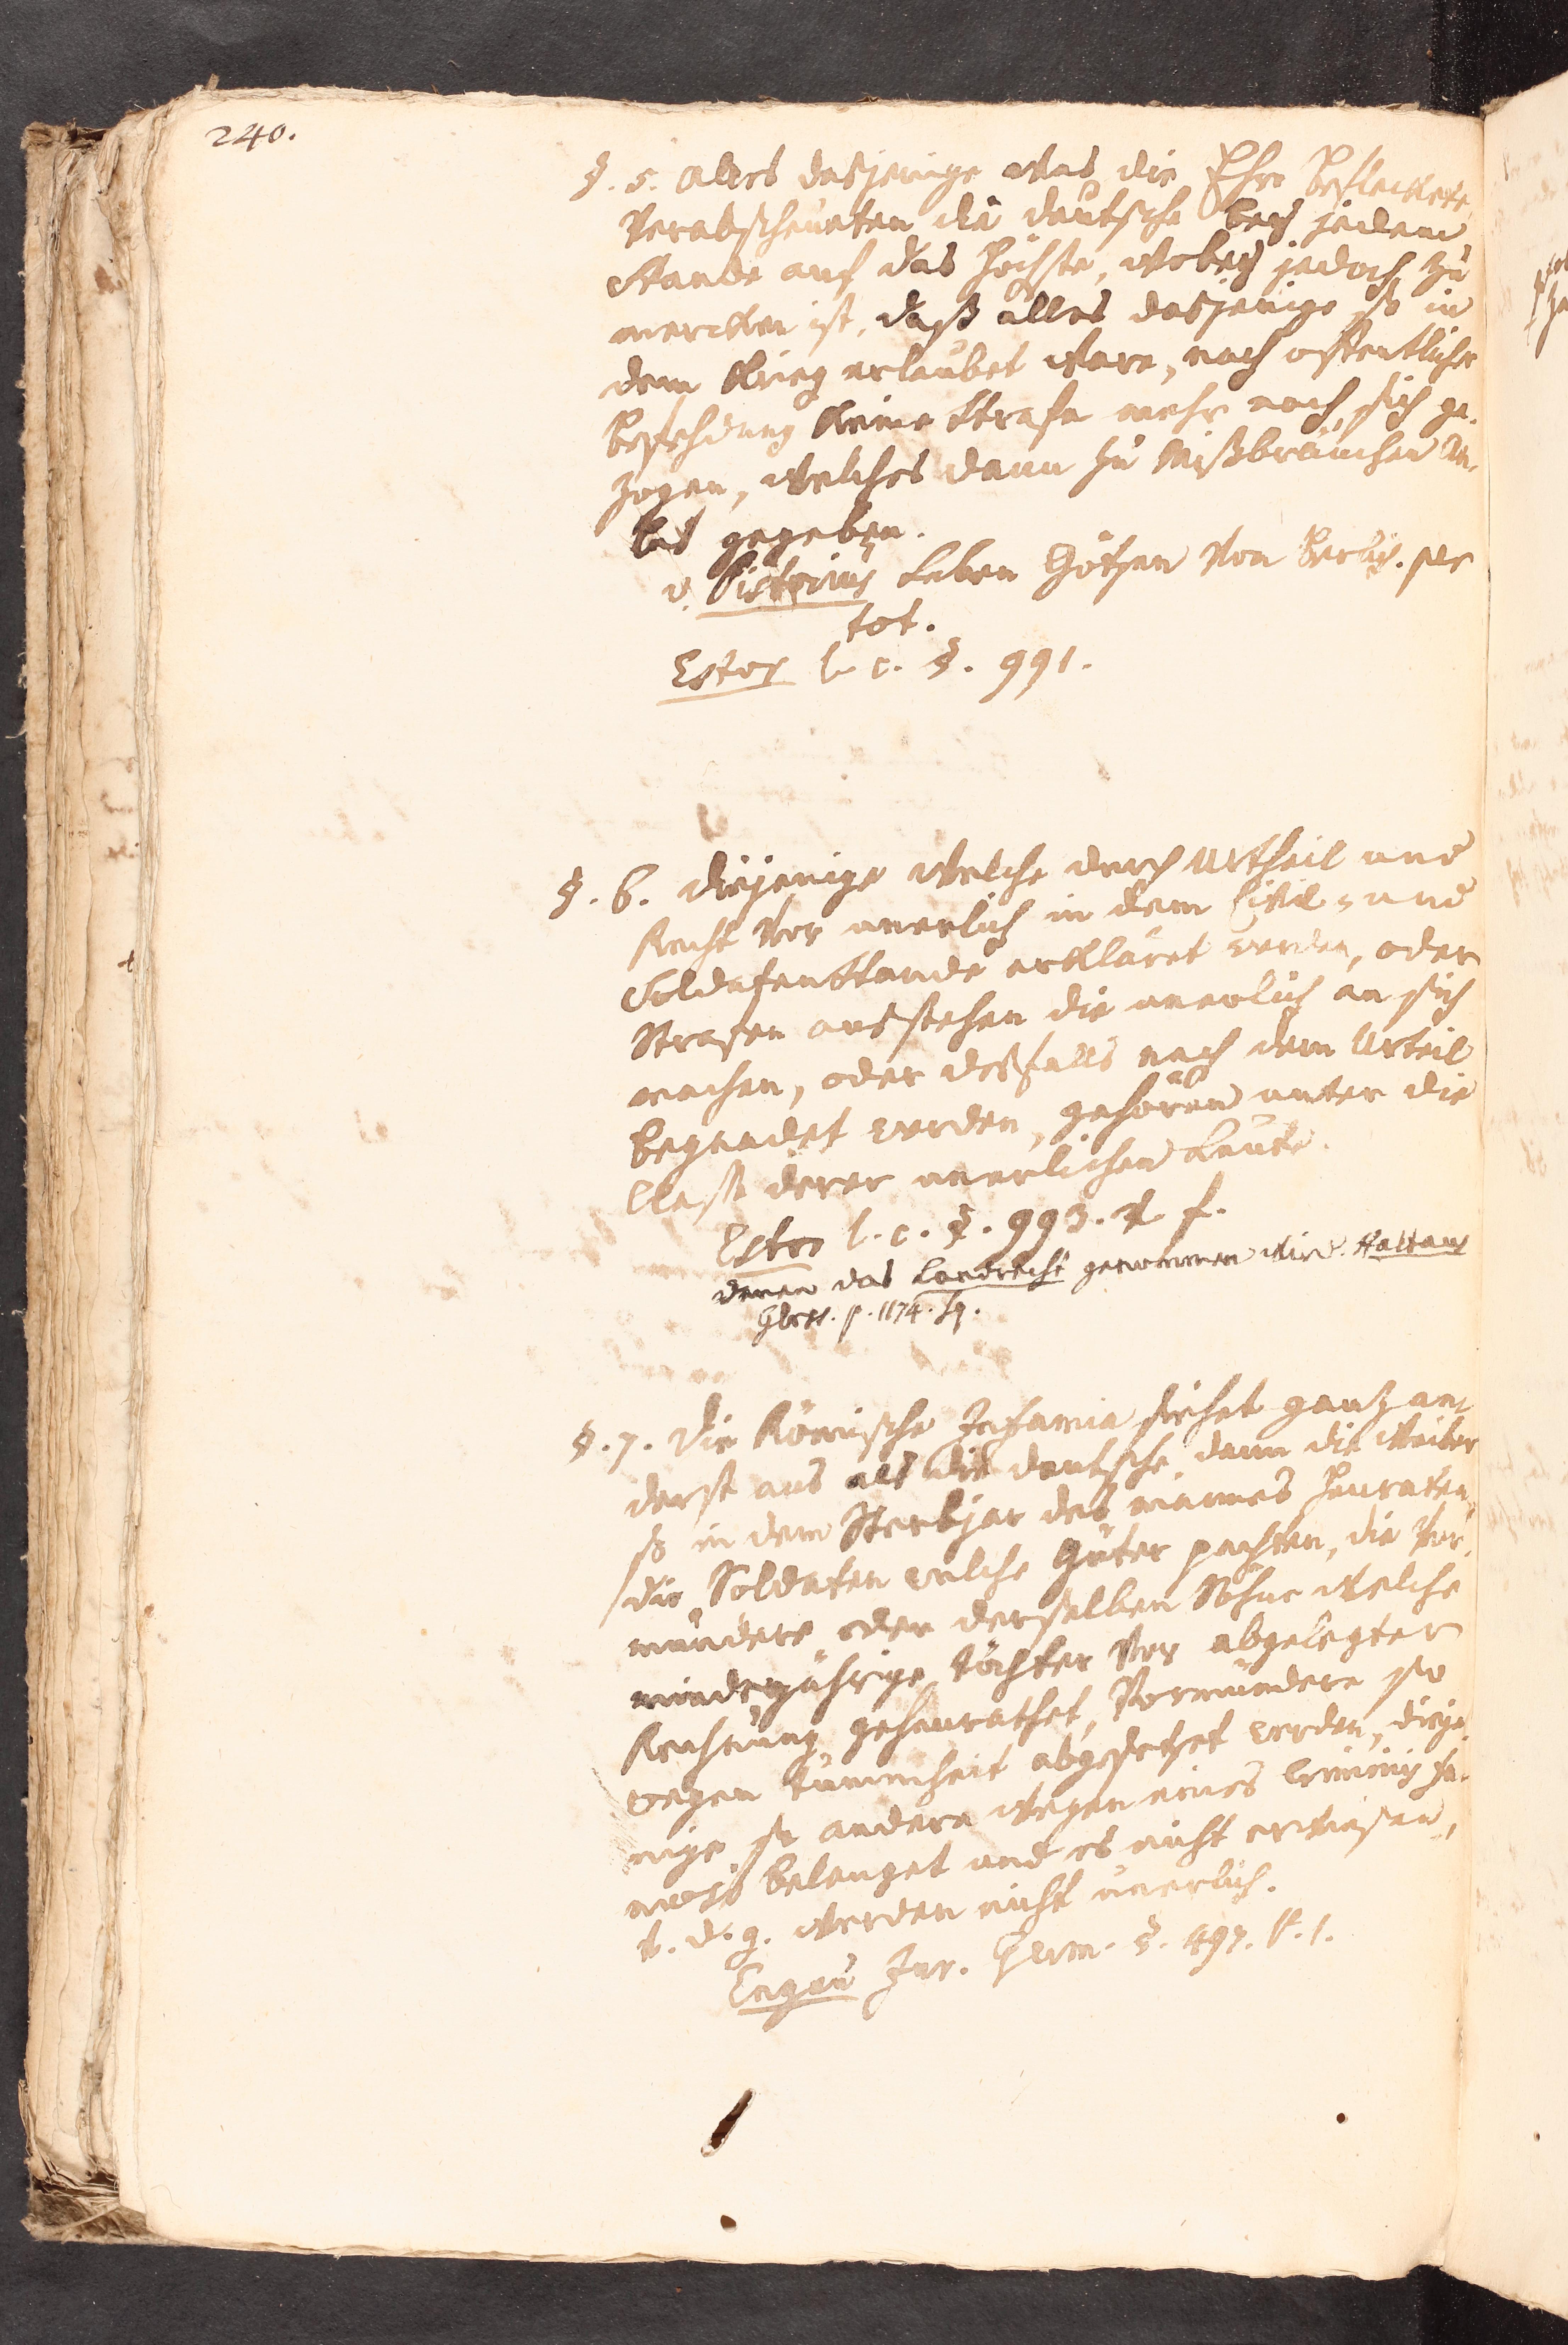 240.
§. 5. Alles dasjenige was die Ehre befleckete,
verabscheueten die deutsche bey jedem
Stande auf das höchste, wobey jedoch zu
mercken ist, daß alles dasjenige so in
dem Krieg erlaubet ware, nach offentlicher
Befehdung keine Strafe mehr nach sich ge-
zogen, welches dann zu Mißbräuchen An-
las gegeben.
v. Pistorius Leben Götzen von Berlich. per
tot.
Estor l. c. §. 991.
§. 6. diejenige welche durch Urtheil und
Recht vor unerlich in dem Civil- und
Soldatenstande erkläret werden, oder
Strafen ausstehen die unerlich an sich
machen, oder desfalls nach dem Urteil
begnadet werden, gehören unter die
Classe derer unerlichen Leute.
Estor l. c. §. 993. f.
denen das Landrecht genommen wird. Haltaus
Gloss. p. 1174. sq.
§. 7. Die Römische Infamia siehet ganz an-
derst aus als die deutsche, dann die Weiber
so in dem Sterbjar des mannes heuraten,
die Soldaten welche Güter pachten, die Vor-
mündere oder derselben Söhne welche
minderjährige töchter vor abgelegter
Rechnung geheurathet, Vormündere so
wegen tummheit abgesetzet werden, dieje-
nige so andere wegen eines criminis fa-
mosi belanget und es nicht erwiesen,
u. d. g. werden nicht unerlich.
Engau Jur. Germ. §. 497. l. 1.